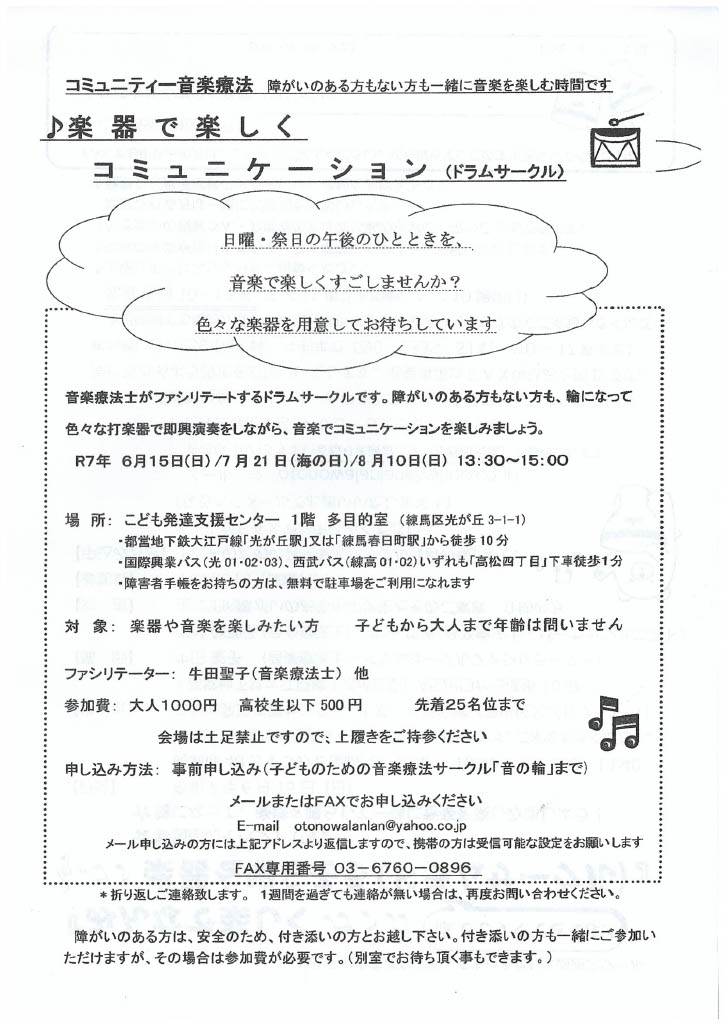 コミュニティー音楽療法　障がいのある方もない方も一緒に音楽を楽しむ時間です
♪楽器で楽しく
コミュニケーション（ドラムサークル）
日曜・祭日の午後のひとときを、
音楽で楽しくすごしませんか？
色々な楽器を用意してお待ちしています
音楽療法士がファシリテートするドラムサークルです。障がいのある方もない方も、輪になって
色々な打楽器で即興演奏をしながら、音楽でコミュニケーションを楽しみましょう。
R7年　6月15日(日)/7月21日(海の日)/8月10日(日)　13:30～15:00
場　所:　こども発達支援センター　1階　多目的室　（練馬区光が丘3-1-1）
・都営地下鉄大江戸線「光が丘駅」又は「練馬春日町駅」から徒歩10分
・国際興業バス(光01・02・03)、西武バス(練高01・02)いずれも「高松四丁目」下車徒歩1分
・障害者手帳をお持ちの方は、無料で駐車場をご利用になれます
対　象:　楽器や音楽を楽しみたい方　　子どもから大人まで年齢は問いません
ファシリテーター:　牛田聖子(音楽療法士)　他
参加費:　大人1000円　高校生以下500円　　　先着25名位まで
会場は土足禁止ですので、上履きをご持参ください
申し込み方法:　事前申し込み(子どものための音楽療法サークル「音の輪」まで)
メールまたはFAXでお申し込みください
E-mail　otonowalanlan@yahoo.co.jp
メール申し込みの方には上記アドレスより返信しますので、携帯の方は受信可能な設定をお願いします
FAX専用番号　03-6760-0896
＊折り返しご連絡致します。　1週間を過ぎても連絡が無い場合は、再度お問い合わせください。
障がいのある方は、安全のため、付き添いの方とお越し下さい。付き添いの方も一緒にご参加い
ただけますが、その場合は参加費が必要です。（別室でお待ち頂く事もできます。）